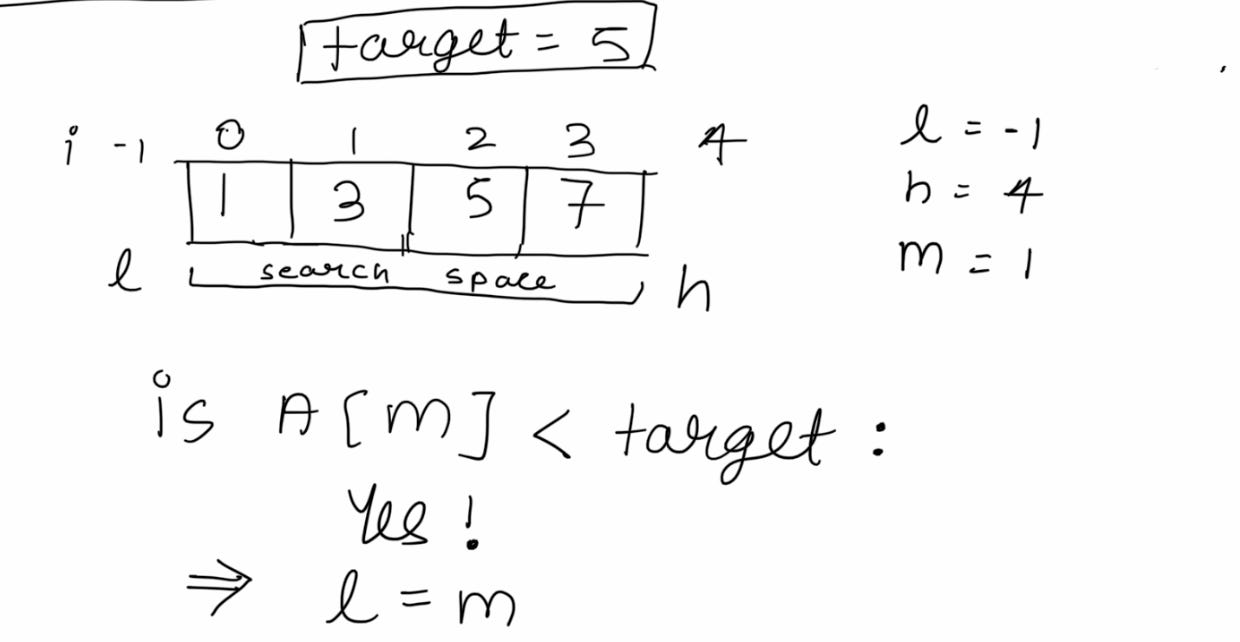 target = 5
i -1 0 1 2 3 4
1 3 5 7
l search space h
l = -1
h = 4
m = 1
is A[m] < target :
Yes !
⇒ l = m